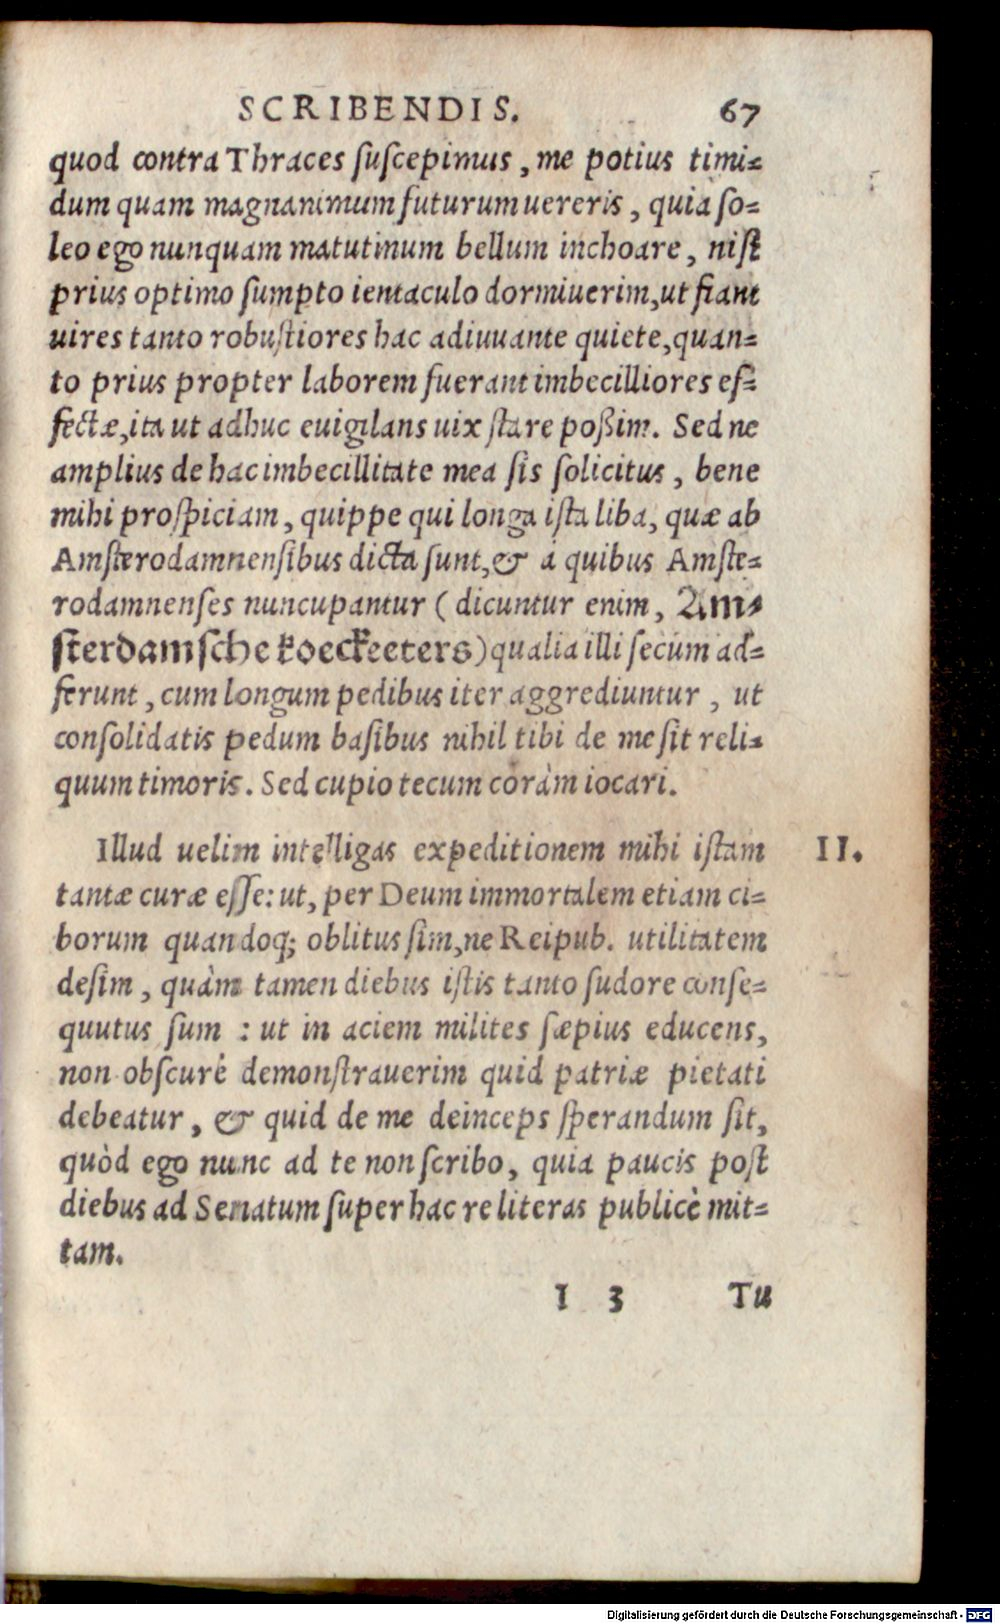 SCRIBENDIS. 67
quod contra Thraces ſuſcepimus, me potius timi-
dum quam magnanimum futurum uereris, quia ſo-
leo ego nunquam matutinum bellum inchoare, niſi
prius optimo ſumpto ientaculo dormiuerim, ut fiant
uires tanto robuſtiores hac adiuuante quiete, quan-
to prius propter laborem fuerant imbecilliores ef-
fectæ, ita ut adhuc euigilans uix ſtare poßim. Sed ne
amplius de hac imbecillitate mea ſis ſolicitus, bene
mihi proſpiciam, quippe qui longa iſta liba, quæ ab
Amſterodamnenſibus dicta ſunt, & á quibus Amſte-
rodamnenſes nuncupantur (dicuntur enim, Am-
ſterdamſche koeckeeters) qualia illi ſecùm ad-
ferunt, cum longum pedibus iter aggrediuntur, ut
conſolidatis pedum baſibus nihil tibi de me ſit reli-
quum timoris. Sed cupio tecum coràm iocari.
Illud uelim intelligas expeditionem mihi iſtam II.
tantæ curæ eſſe: ut, per Deum immortalem etiam ci-
borum quandoq; oblitus ſim, ne Reipub. utilitatem
deſim, quàm tamen diebus iſtis tanto ſudore conſe-
quutus ſum : ut in aciem milites ſæpius educens,
non obſcuré demonſtrauerim quid patriæ pietati
debeatur, & quid de me deinceps ſperandum ſit,
quòd ego nunc ad te non ſcribo, quia paucis poſt
diebus ad Senatum ſuper hac re literas publicè mit-
tam.
I 3 Tu
Digitalisierung gefördert durch die Deutsche Forschungsgemeinschaft - DFG